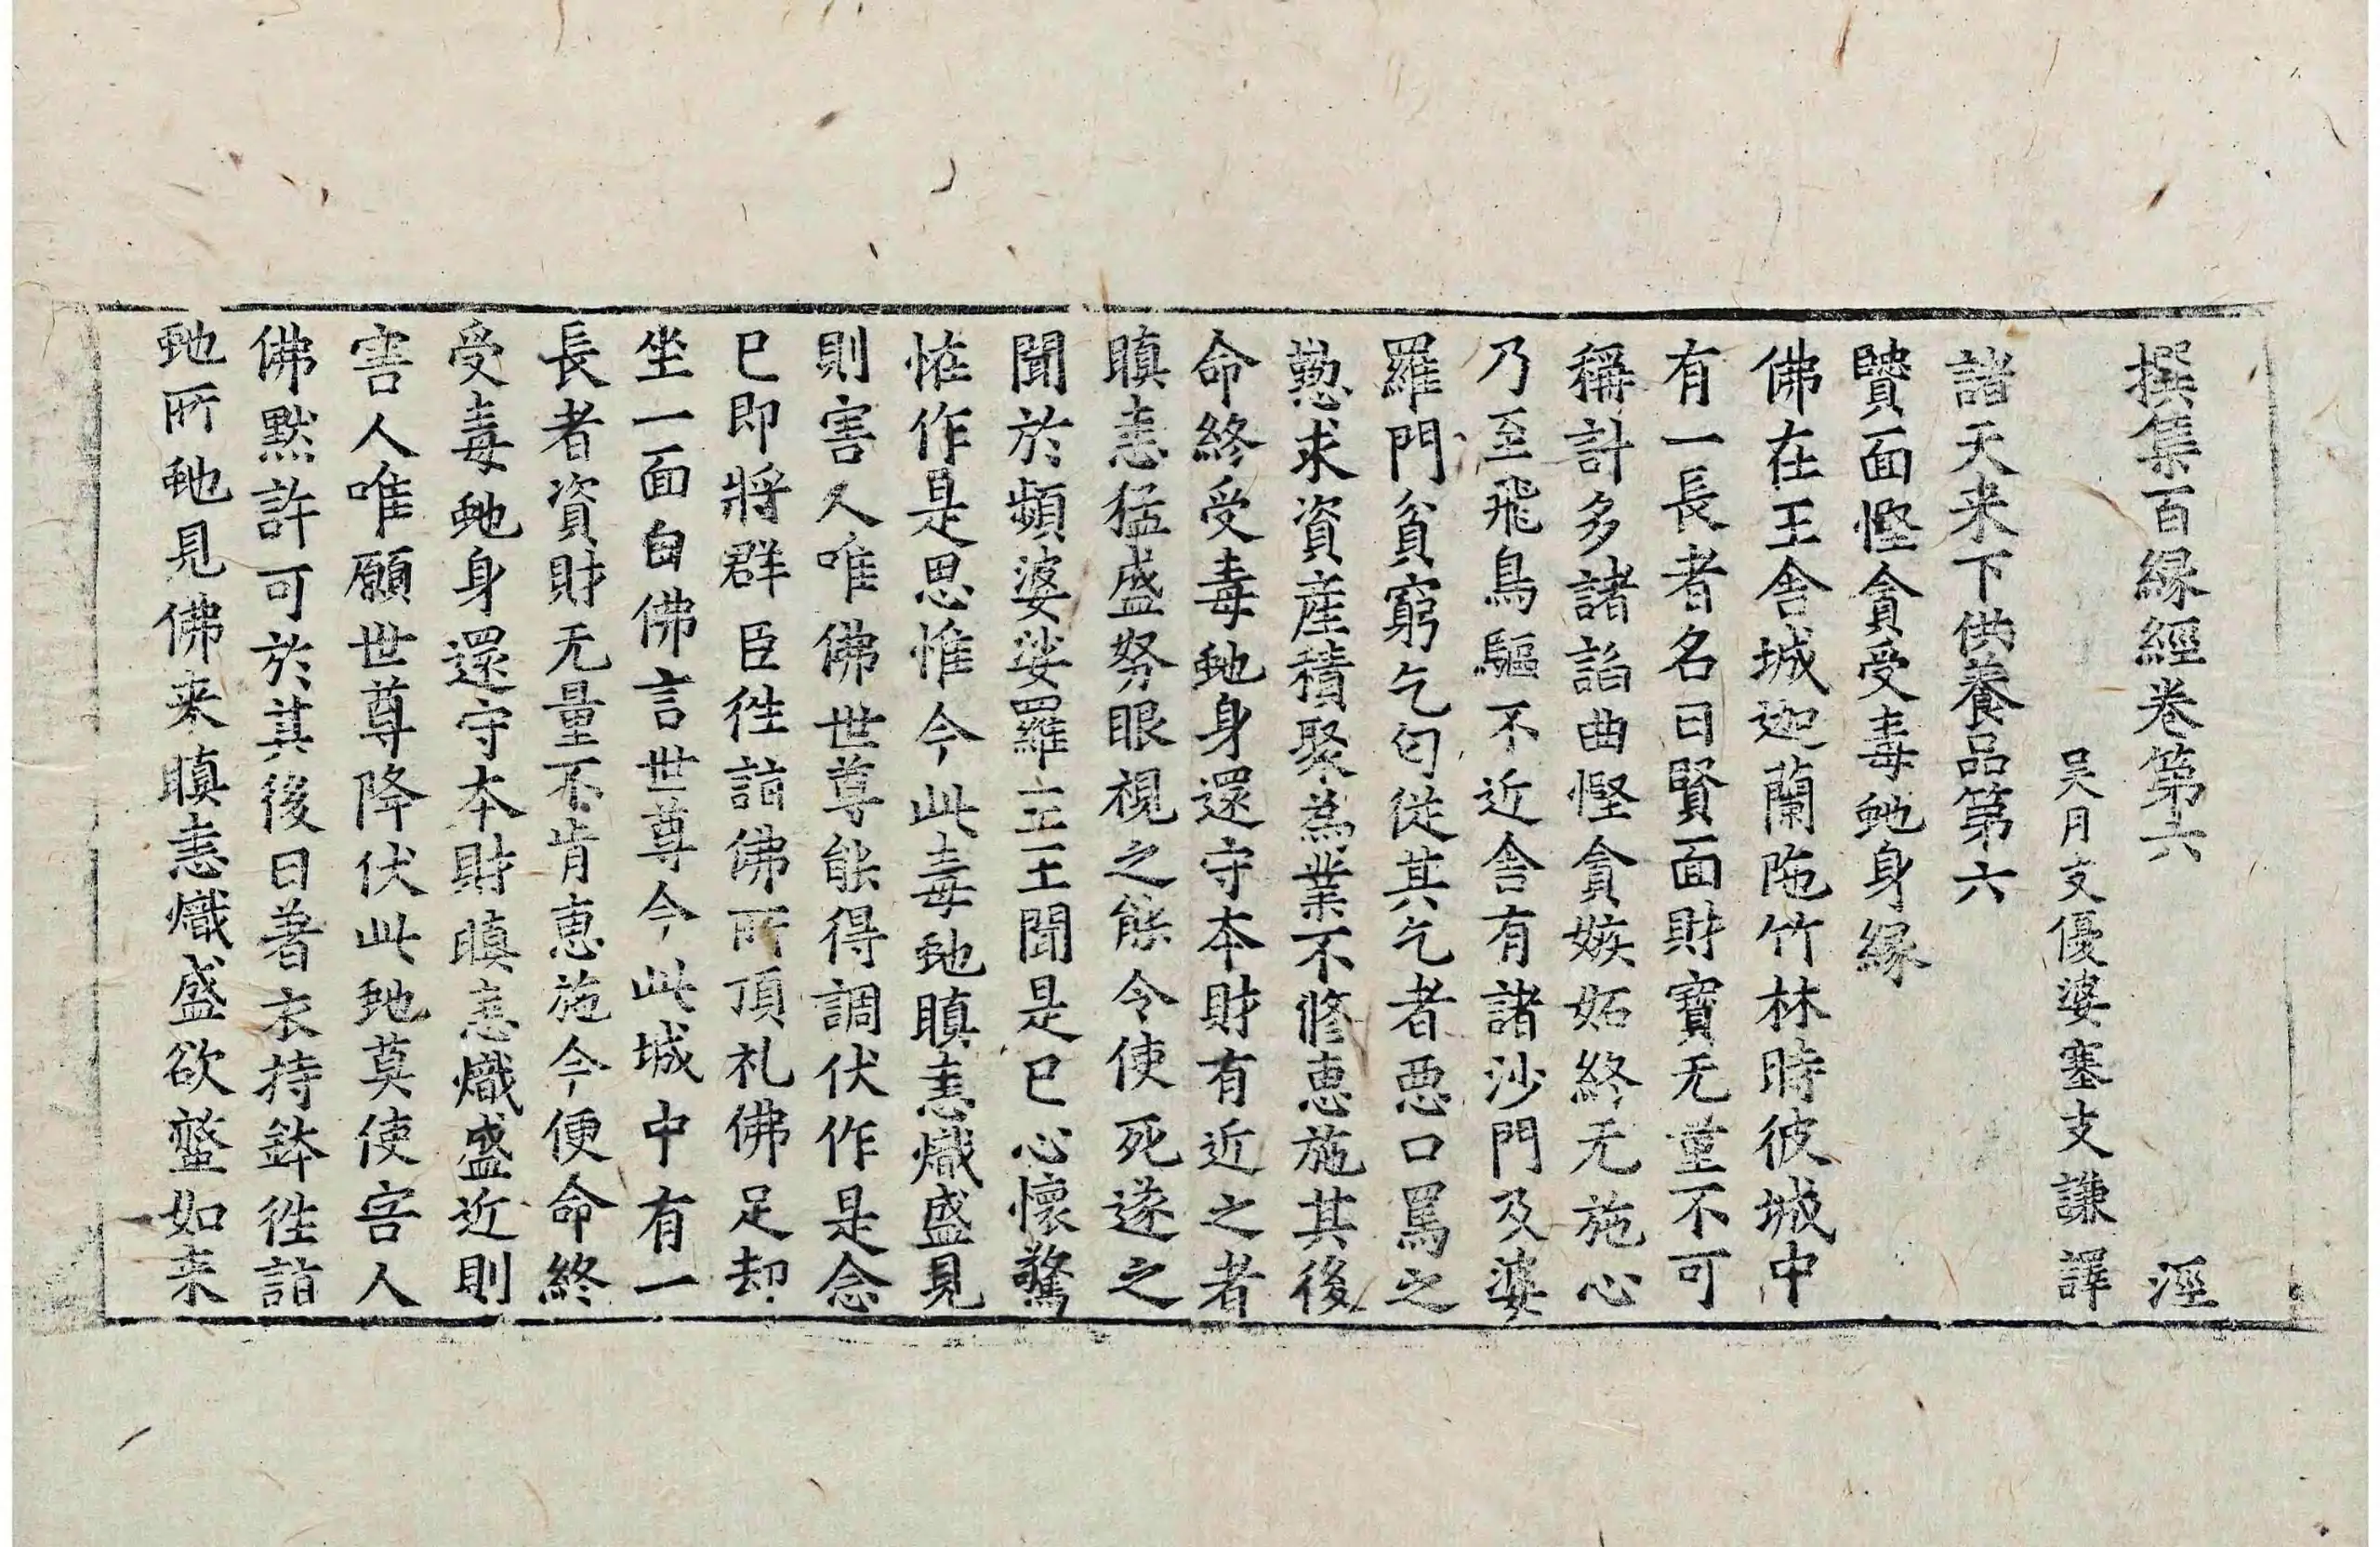 撰集百縁經卷第六　涇
吴月支優婆塞支謙譯
諸天来下供養品第六
賢面慳貪受毒虵身縁
佛在王舍城迦蘭陁竹林時彼城中
有一長者名曰賢面財寶无量不可
稱計多諸諂曲慳貪嫉妬終无施心
乃至飛鳥驅不近舍有諸沙門及婆
羅門貧窮乞匃從其乞者惡口罵之
懃求資産積聚為業不修恵施其後
命終受毒虵身還守本財有近之者
瞋恚猛盛努眼視之能令使死遂之
聞於頻婆娑羅王王聞是已心懷驚
恠作是思惟今此毒虵瞋恚熾盛見
則害人唯佛世尊能得調伏作是念
已即將群臣徃詣佛所頂礼佛足却
坐一面白佛言世尊今此城中有一
長者資財无量不肯恵施今便命終
受毒虵身還守本財瞋恚熾盛近則
害人唯願世尊降伏此虵莫使害人
佛黙許可於其後日著衣持鉢徃詣
虵所虵見佛来瞋恚熾盛欲螫如来